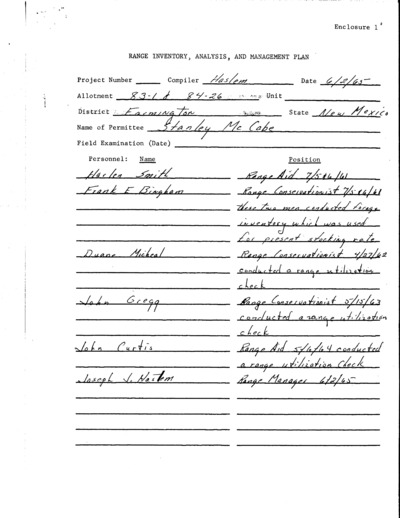 Enclosure 1
RANGE INVENTORY, ANALYSIS, AND MANAGEMENT PLAN
Project Number Compiler Haslem Date 6/2/65
Allotment 83-1 & 84-26 Unit
District Farmington State New Mexico
Name of Permittee Stanley Mc Cabe
Field Examination (Date)
Personnel: Name Position
Harlen Smith Range Aid 7/5&6/61
Frank E Bingham Range Conservationist 7/5&6/61
these two men conducted forage
inventory which was used
for present stocking rate
Duane Micheal Range Conservationist 4/27/62
conducted a range utilization
check
John Gregg Range Conservationist 5/15/63
conducted a range utilization
check
John Curtis Range Aid 5/6/64 conducted
a range utilization Check
Joseph J. Haslem Range Manager 6/2/65